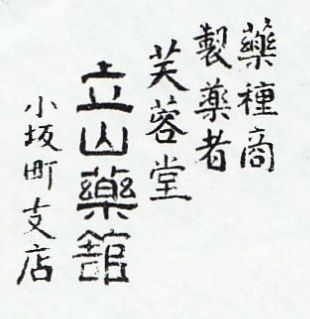 藥種商
製藥者
芙蓉堂
立山藥館
小坂町支店